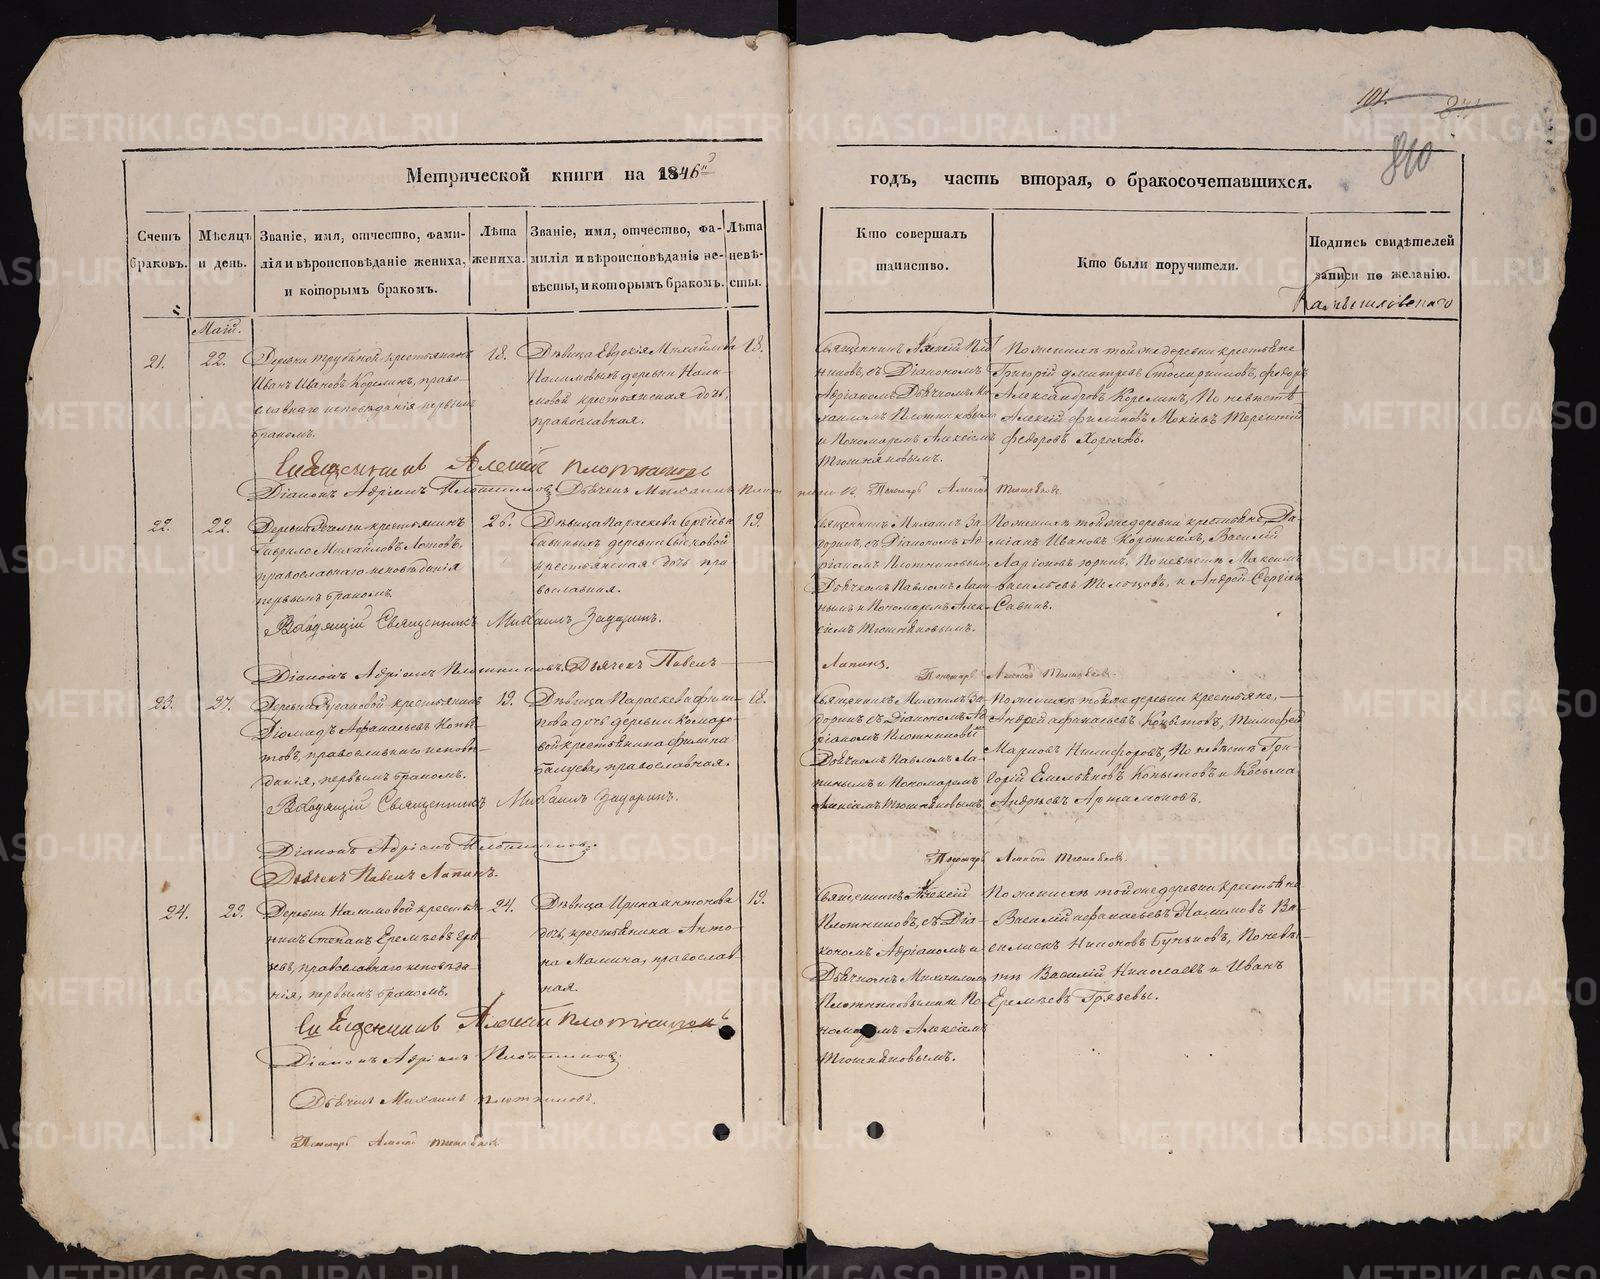 101.
810
Метрической книги на 1846й
годъ, часть вторая, о бракосочетавшихся.
Счетъ браковъ.
Мѣсяцъ и день.
Званіе, имя, отчество, фами-
лія и вѣроисповѣданіе жениха,
и которымъ бракомъ.
Лѣта жениха.
Званіе, имя, отчество, фа-
милія и вѣроисповѣданіе не-
вѣсты, и которымъ бракомъ.
Лѣта невѣ-
сты.
Кто совершалъ
таинство.
Кто были поручители.
Подпись свидѣтелей
записи по желанію.
Май.
21.
22.
Деревни Трубиной крестьянинъ
Иванъ Ивановъ Корелинъ, право-
славнаго исповѣданія первымъ
бракомъ.
18.
Дѣвица Евдокія Михайлова
Налимовыхъ деревни Нали-
мовой крестьянская дочь,
православная.
18.
Священникъ Алексій Плот
никовъ, съ Діакономъ
Адріаномъ Дьячкомъ Ми-
хаиломъ Плотниковыми
и Пономаремъ Алексіемъ
Тюшняковымъ.
По женихѣ той же деревни крестьяне
Григорій Дмитріевъ Федоръ
Александровъ Корелинъ, По невѣстѣ
Алексій Филиповъ Терентій
Федоровъ
Священникъ Алексій Плотниковъ
Діаконъ Адріанъ Плотниковъ Дьячекъ Михаилъ Плотниковъ Пономарь Алексій Тюшняковъ
22.
22.
Деревни крестьянинъ
Гаврило Михайловъ
православнаго исповѣданія
первымъ бракомъ
26.
Дѣвица Параскева Сергіева
Савиныхъ деревни
крестьянская дочь пра
вославная.
19.
Священникъ Михаилъ За-
доринъ, съ Діакономъ Ад-
ріаномъ Плотниковымъ
Дьячкомъ Павломъ Лапи-
нымъ и Пономаремъ Алек-
сіемъ Тюшняковымъ.
По женихѣ той же деревни крестьяне
Ивановъ Василій
Ларіоновъ По невѣстѣ Максимъ
Васильевъ и Андрей Сергіевъ
Савинъ.
Священникъ Михаилъ Задоринъ.
Діаконъ Адріанъ Плотниковъ. Дьячекъ Павелъ Лапинъ.
Пономарь Алексій Тюшняковъ.
23.
27.
Деревни Русановой крестьянинъ
Діомидъ Афанасьевъ Копы-
товъ, православнаго исповѣ-
данія, первымъ бракомъ.
19.
Дѣвица Параскева Фили-
пова дочь деревни Комаро-
вой крестьянина Филипа
православная.
18.
Священникъ Михаилъ За
доринъ съ Діакономъ Ад
ріаномъ Плотниковымъ
Дьячкомъ Павломъ Ла-
пинымъ и Пономаремъ
Алексіемъ Тюшняковымъ
По женихѣ той же деревни крестьяне,
Андрей Афанасьевъ Копытовъ, Тимофей
Марковъ Никифоровъ, По невѣстѣ Гри-
горій Емельяновъ Копытовъ и Косьма
Андреевъ Артамоновъ.
Священникъ Михаилъ Задоринъ.
Діаконъ Адріанъ Плотниковъ.
Дьячекъ Павелъ Лапинъ.
Пономарь Алексій Тюшняковъ.
24.
29.
Деревни Налимовой крестья-
нинъ Степанъ Еремѣевъ Гря-
зевъ, православнаго исповѣда-
нія, первымъ бракомъ.
24.
Дѣвица Ирина Антонова
дочь, крестьянина Анто-
на Мамина, православ-
ная.
19.
Священникъ Алексій
Плотниковъ, съ Діа-
кономъ Адріаномъ и
Дьячкомъ Михаиломъ
Плотниковыми и По-
номаремъ Алексіемъ
Тюшняковымъ.
По женихѣ той же деревни крестьяне
Василій Афанасьевъ Налимовъ Ва-
Никоновъ По невѣ-
стѣ Василій Николаевъ и Иванъ
Еремѣевъ Грязевы.
Священникъ Алексій Плотниковъ
Діаконъ Адріанъ Плотниковъ.
Дьячекъ Михаилъ Плотниковъ.
Пономарь Алексій Тюшняковъ.
METRIKI.GASO-URAL.RU